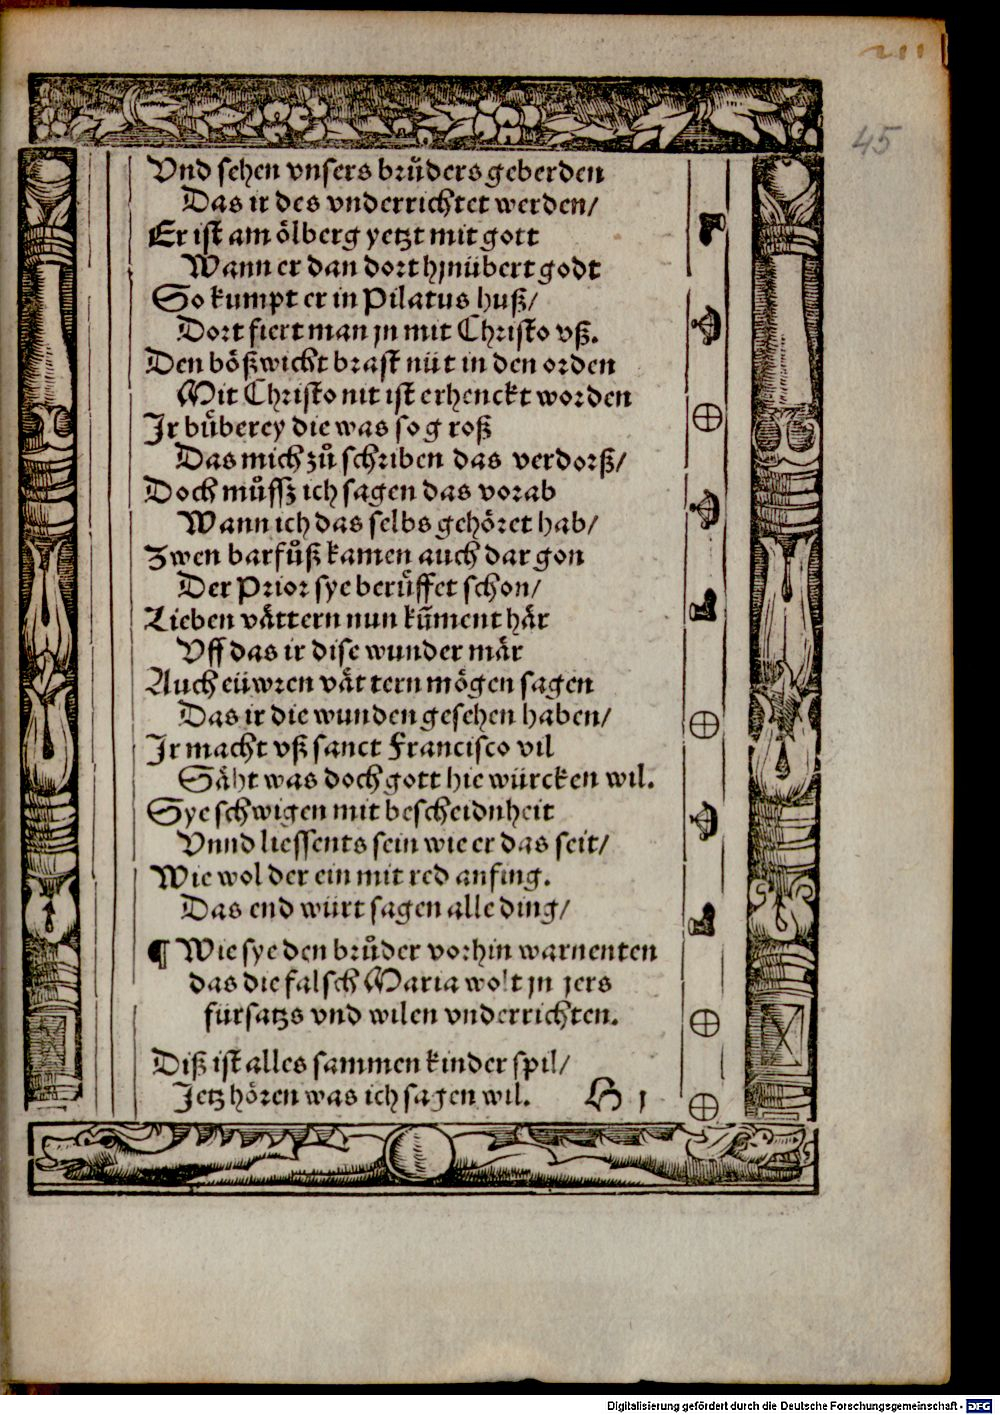 211
45
Vnd sehen vnsers brůders geberden
Das ir des vnderrichtet werden/
Er ist am ölberg yetzt mit gott
Wann er dan dort hjnübert godt
So kumpt er in Pilatus huß/
Dort fiert man jn mit Christo vß.
Den bößwicht brast nüt in den orden
Mit Christo nit ist erhenckt worden
Ir büberey die was so g roß
Das mich zů schriben das verdorß/
Doch můssz ich sagen das vorab
Wann ich das selbs gehöret hab/
Zwen barfůß kamen auch dar gon
Der Prior sye berüffet schon/
Lieben vättern nun kum̃ent här
Vff das ir dise wunder mär
Auch eüwren vät tern mögen sagen
Das ir die wunden gesehen haben/
Ir macht vß sanct Francisco vil
Säht was doch gott hie würcken wil.
Sye schwigen mit bescheidnheit
Vnnd liessents sein wie er das seit/
Wie wol der ein mit red anfing.
Das end würt sagen alle ding/
¶ Wie sye den brůder vorhin warnenten
das die falsch Maria wolt jn jers
fürsatzs vnd wilen vnderrichten.
Diß ist alles sammen kinder spil/
Jetz hören was ich sagen wil. H j
Digitalisierung gefördert durch die Deutsche Forschungsgemeinschaft - DFG